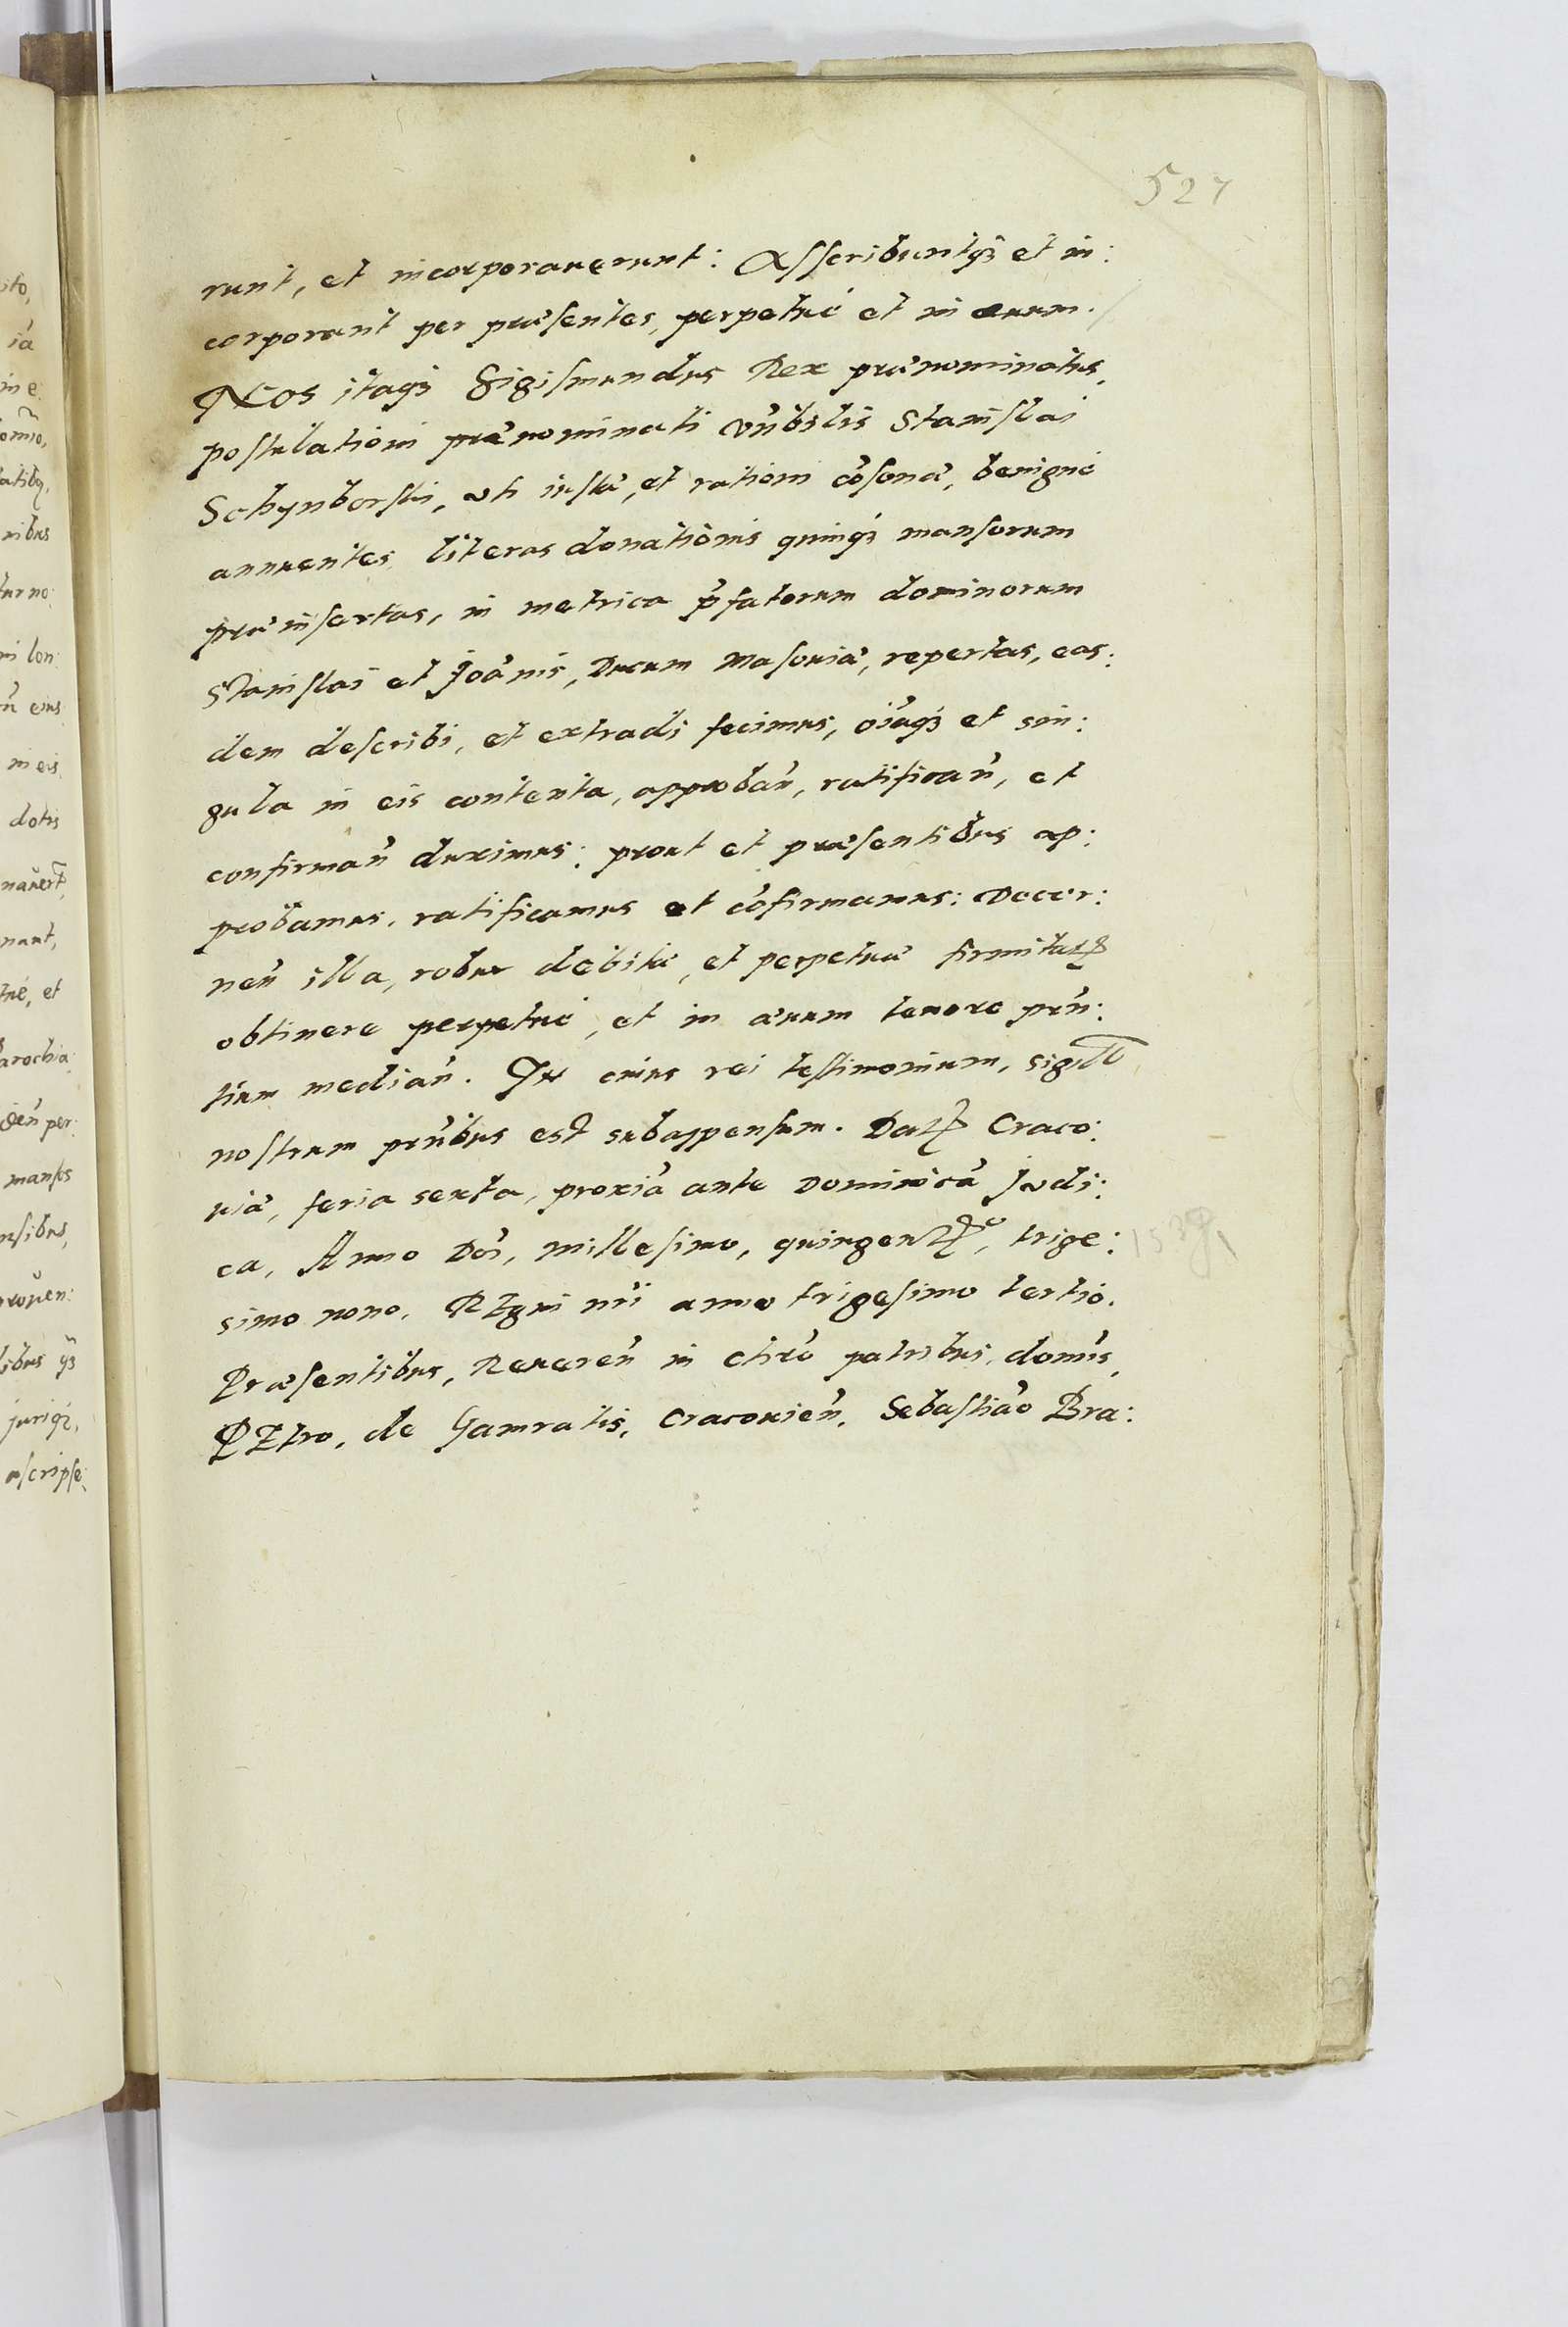 527
runt, et incorporauerunt: Asscribuntqȝ et in:
corporant per præsentes, perpetué et in æuum.
NOS itaqȝ Sigismundus Rex prænominatus,
postulationi prænominati vn̄bilis Stanislai
Schynborski, vti iustæ, et rationi cōsonæ, benigné
annuentes, literas donationis quinqȝ mansorum
præinsertas, in metrica p̄fatorum dominorum
Stanislai et Joānis, Ducum Masouiæ, repertas, eas:
dem describi, et extradi fecimus, oīaqȝ et sin:
gula in eis contenta, approbān, ratificān, et
confirmān duximus: prout et præsentibus ap:
probamus, ratificamus et cōfirmamus: Decer:
nēn illa, robur debitæ, et perpetuæ firmitatꝭ
obtinere perpetué, et in æuum tenore prn̄:
tium mediān. In cuius rei testimonium, sigill̄
nostrum prn̄tibus est subappensum. Datꝭ Craco:
uiæ, feria sexta, proxiā ante Dominicā Judi:
ca, Anno Dn̄i, millesimo, quingentꝭo, trige:
1539
simo nono, REgni nr̄i anno trigesimo tertio.
Præsentibus, Reuerēn in chrō patribus, domīs,
PEtro, de Gamratis, Cracouiēn, Sebastiāo Bra:
ito,
ia
in e:
omīo,
atibꝫ,
nibus
tur no:
in lon:
n̄ eius
in eis
dotis
nauert̄,
nant,
tué, et
arochia:
dēn per:
mansos
nsibus,
prouen:
libus qȝ
juriqȝ,
ascripse: